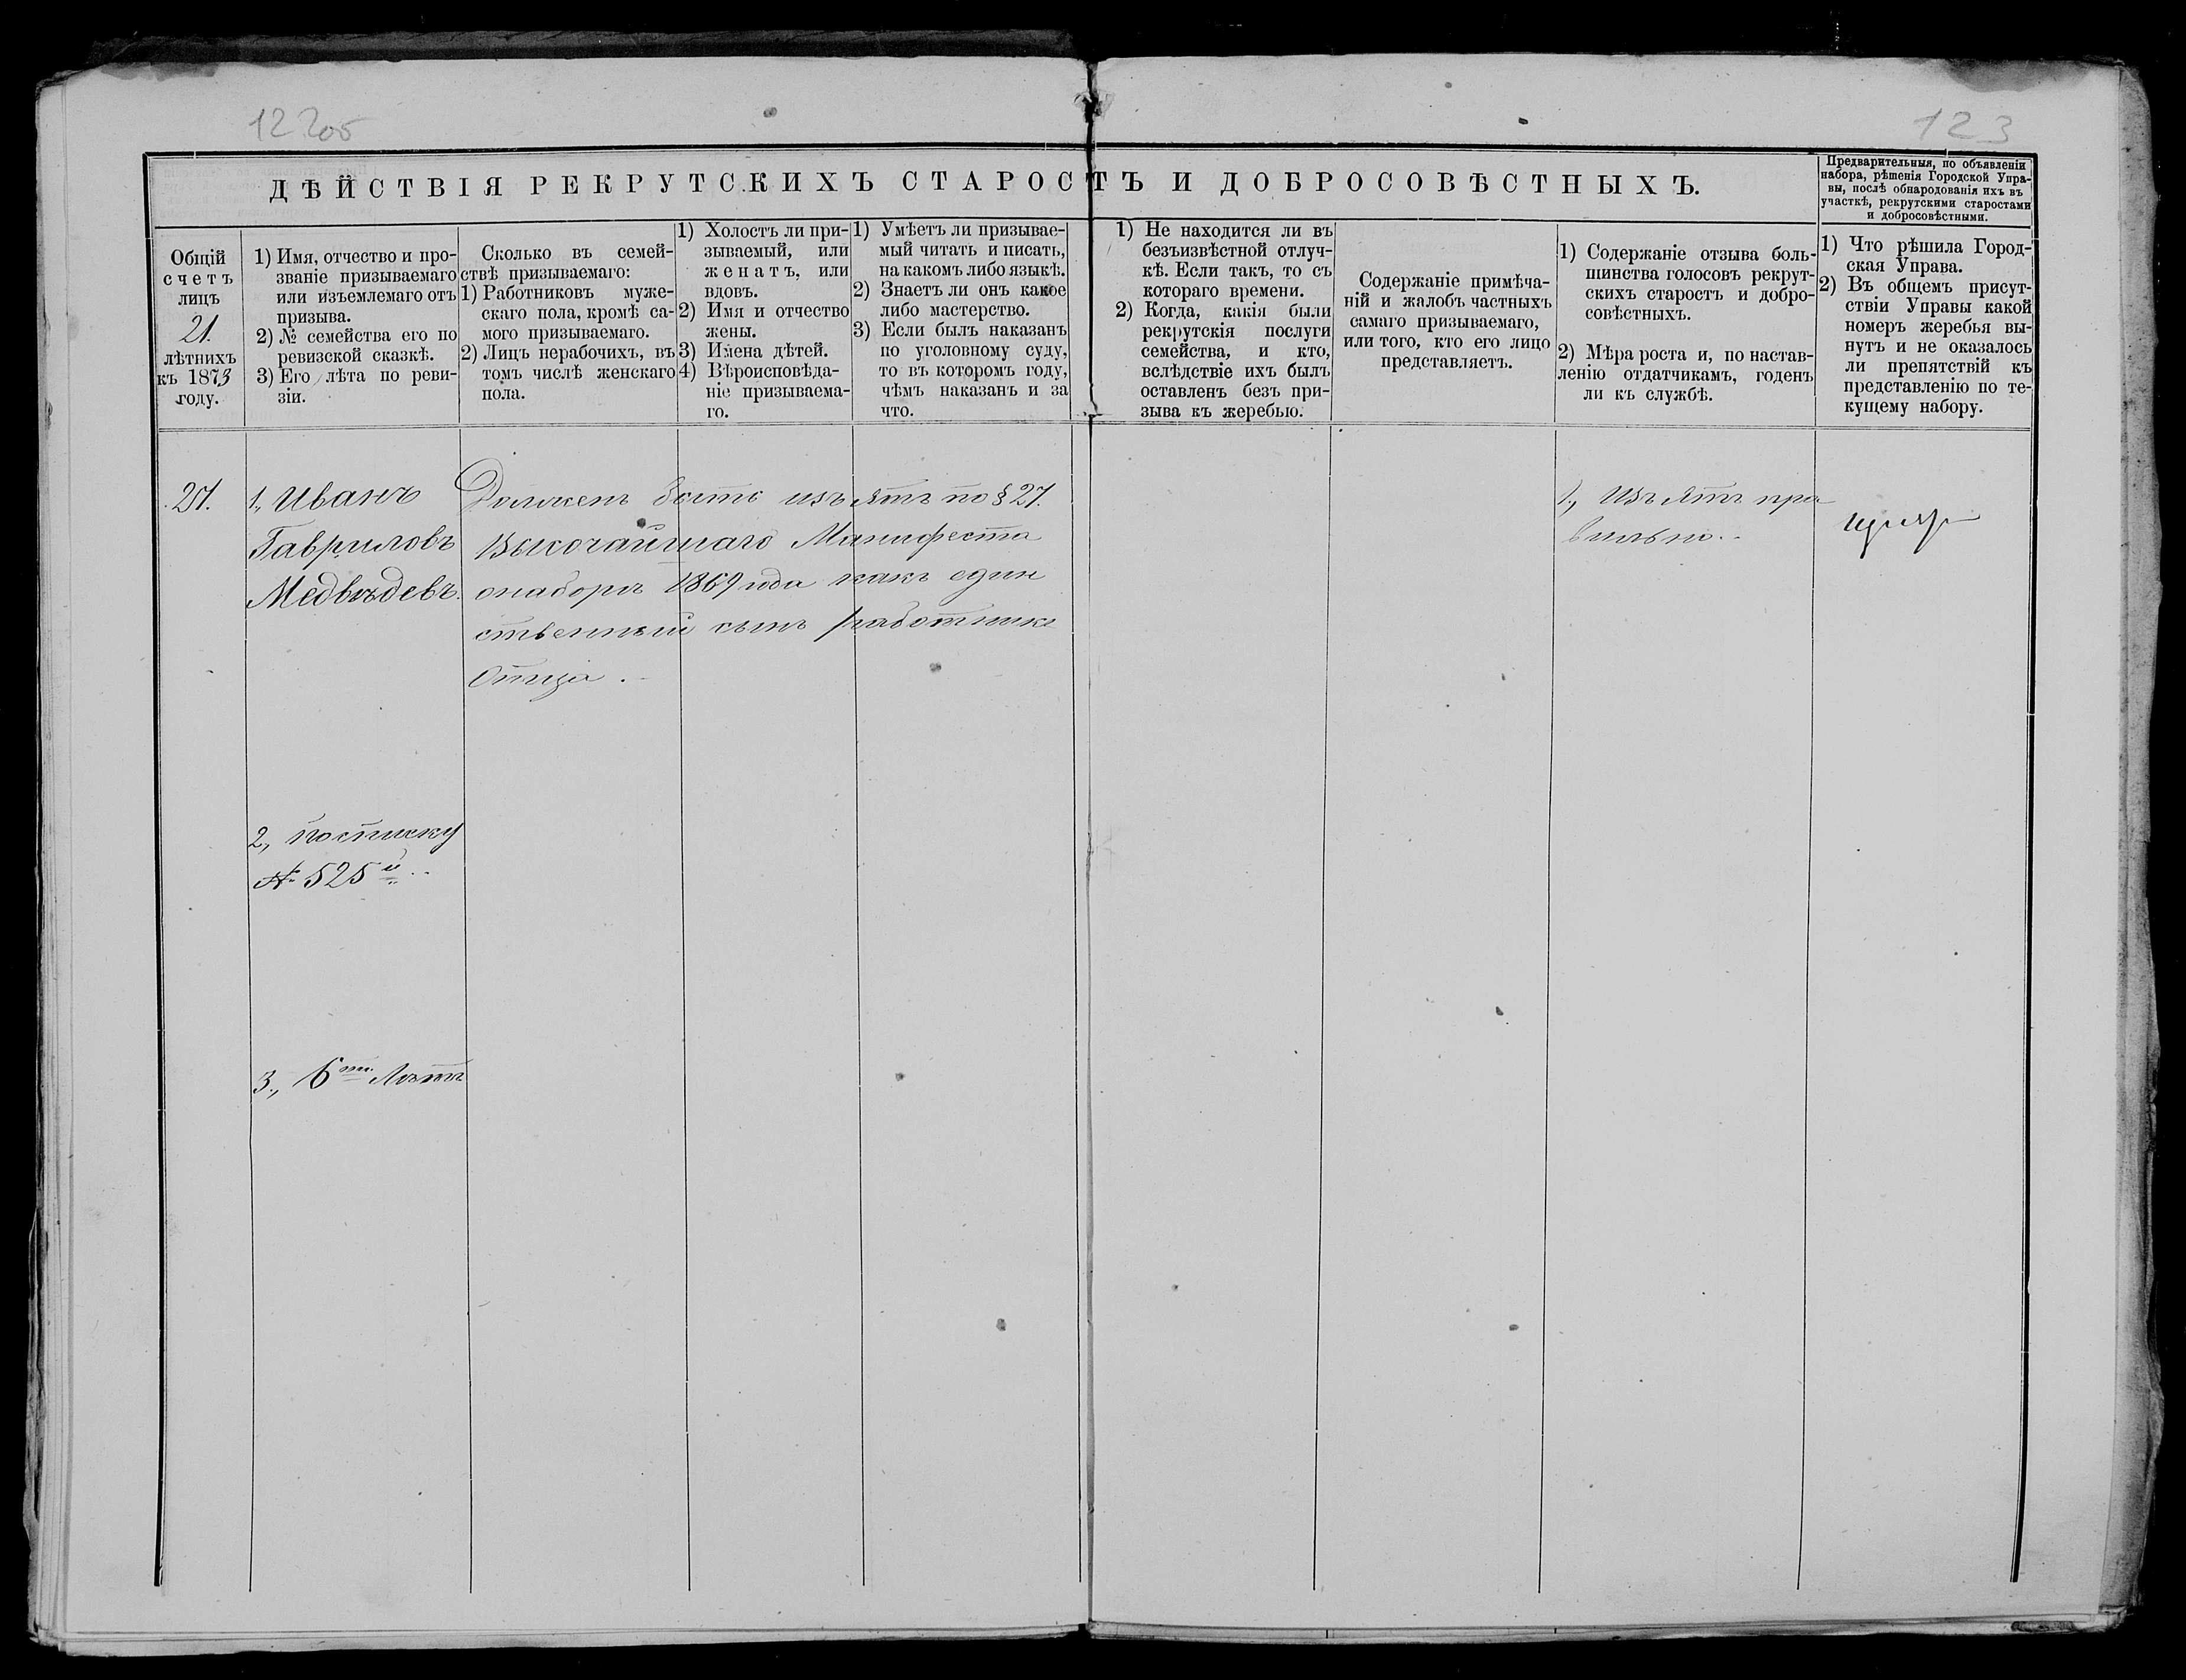 122об
123
ДѢЙСТВІЯ РЕКРУТСКИХЪ СТАРОСТЪ И ДОБРОСОВѢСТНЫХЪ.
Предварительныя, по объявленіи
набора, рѣшенія Городской Упра-
вы, послѣ обнародованія ихъ въ
участкѣ, рекрутскими старостами
и добросовѣстными.
Общій
счетъ
лицъ
21.
лѣтнихъ
къ 1873
году.
1) Имя, отчество и про-
званіе призываемаго
или изъемлемаго отъ
призыва.
2) № семейства его по
ревизской сказкѣ.
3) Его лѣта по реви-
зіи.
Сколько въ семей-
ствѣ призываемаго:
1) Работниковъ муже-
скаго пола, кромѣ са-
мого призываемаго.
2) Лицъ нерабочихъ, въ
томъ числѣ женскаго
пола.
1) Холостъ ли при-
зываемый, или
женатъ, или
вдовъ.
2) Имя и отчество
жены.
3) Имена дѣтей.
4) Вѣроисповѣда-
ніе призываема-
го.
1) Умѣетъ ли призывае-
мый читать и писать,
на какомъ либо языкѣ.
2) Знаетъ ли онъ какое
либо мастерство.
3) Если былъ наказанъ
по уголовному суду,
то въ которомъ году,
чѣмъ наказанъ и за
что.
1) Не находится ли въ
безъизвѣстной отлуч-
кѣ. Если такъ, то съ
котораго времени.
2) Когда, какія были
рекрутскія послуги
семейства, и кто,
вслѣдствіе ихъ былъ
оставленъ безъ при-
зыва къ жеребью.
Содержаніе примѣча-
ній и жалобъ частныхъ
самаго призываемаго,
или того, кто его лицо
представляетъ.
1) Содержаніе отзыва боль-
шинства голосовъ рекрут-
скихъ старостъ и добро-
совѣстныхъ.
2) Мѣра роста и, по настав-
ленію отдатчикамъ, годенъ
ли къ службѣ.
1) Что рѣшила Город-
ская Управа.
2) Въ общемъ присут-
ствіи Управы какой
номеръ жеребья вы-
нутъ и не оказалось
ли препятствій къ
представленію по те-
кущему набору.
27.
1., Иванъ
Гавриловъ
Медвѣдевъ.
Долженъ быть изъятъ по § 27.
Высочайшаго Манифеста
о наборѣ 1869 года какъ един
ственный сынъ работникъ
Отца.
1., Изъятъ пра
вильно.
2, по списку
№ 525й
3., 6ти лѣтъ